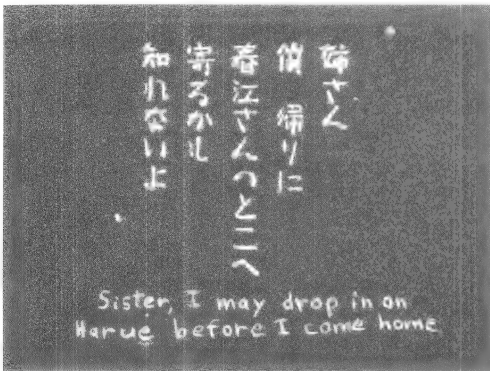 姉さん
僕 帰りに
春江さんのとこへ
寄るかも
知れないよ
Sister, I may drop in on
Harue before I come home